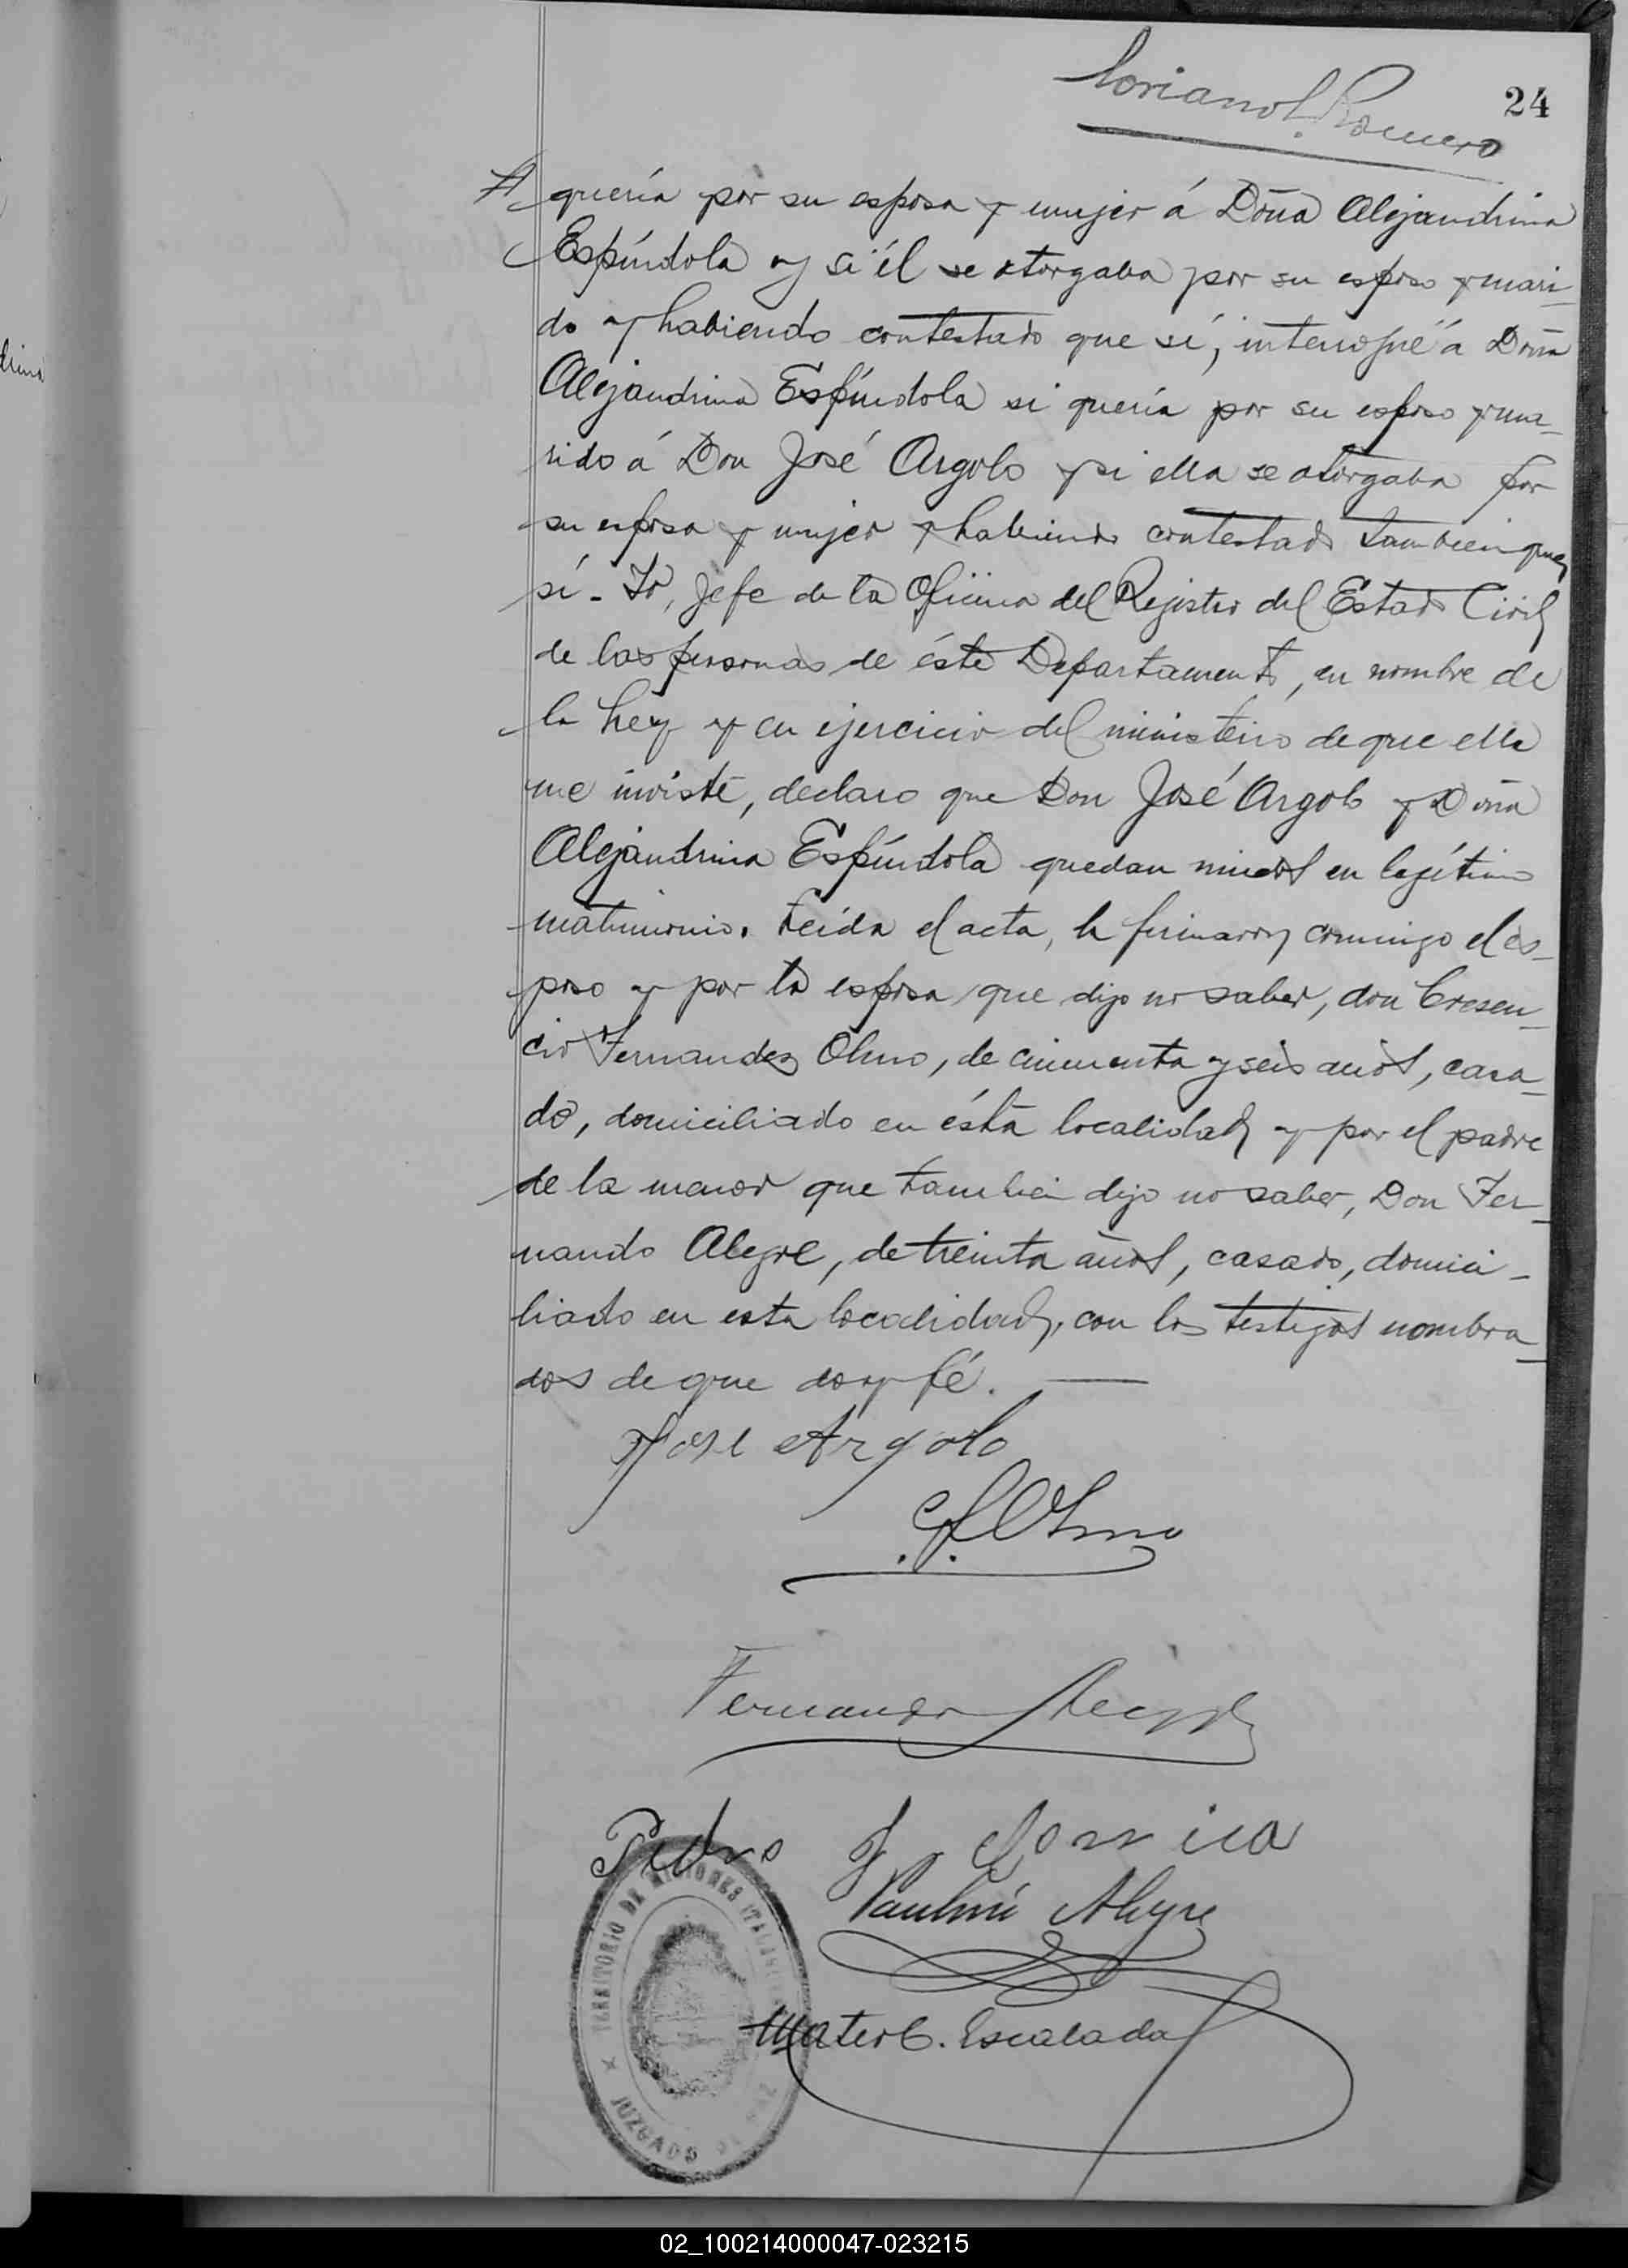 24
Romero
quería por su esposa y mujer á Doña Alejandrina
Espíndola y si él se otorgaba por su esposo y mari-
do y habiendo contestado que sí, interrogué á Doña
Alejandrina Espíndola si quería por su esposo y ma-
rido á Don José Argolo y si ella se otorgaba por
su esposa y mujer y habiendo contestado tambien que
sí - Yo, Jefe de la Oficina del Registro del Estado Civil
de las personas de éste Departamento, en nombre de
la Ley y en ejercicio del ministerio de que ella
me inviste, declaro que Don José Argolo y Doña
Alejandrina Espíndola quedan unidos en legítimo
matrimonio. Leída el acta, la firmaron conmigo el es-
poso y por la esposa que dijo no saber, don Cresen-
cio Fernandez Olmo, de cincuenta y seis años, casa-
do, domiciliado en ésta localidad y por el padre
de la menor que tambien dijo no saber, Don Fer-
nando Alegre, de treinta años, casado, domici-
liado en esta localidad, con los testigos nombra-
dos de que doy fé.
Jose Argolo
C. F. Olmo
Fernando Alegre
Pedro
Alegre
Mateo C. Escalada
TERRITORIO DE MISIONES
JUZGADO DE
drina
02_100214000047-023215